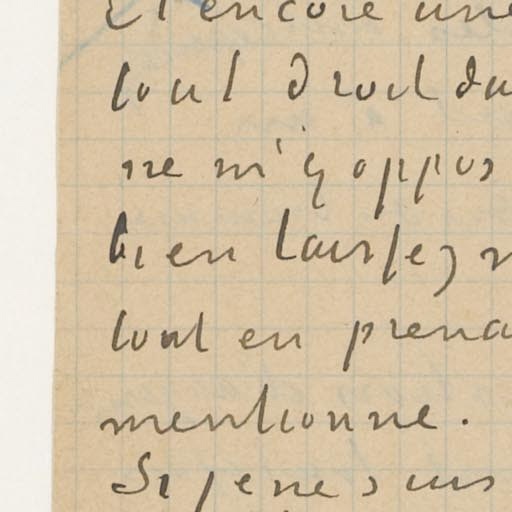 Et encore une
tout droit du
ne m'y oppos
bien laissez
tout en prena
mentionne.
Si je ne suis